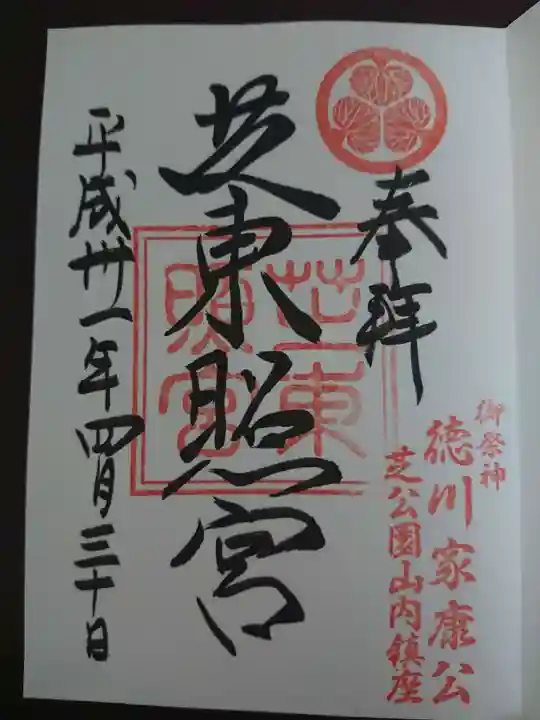 奉拝
御祭神
徳川家康公
芝公園山内鎮座
芝東照宮
芝東
照宮
平成卅一年四月三十日